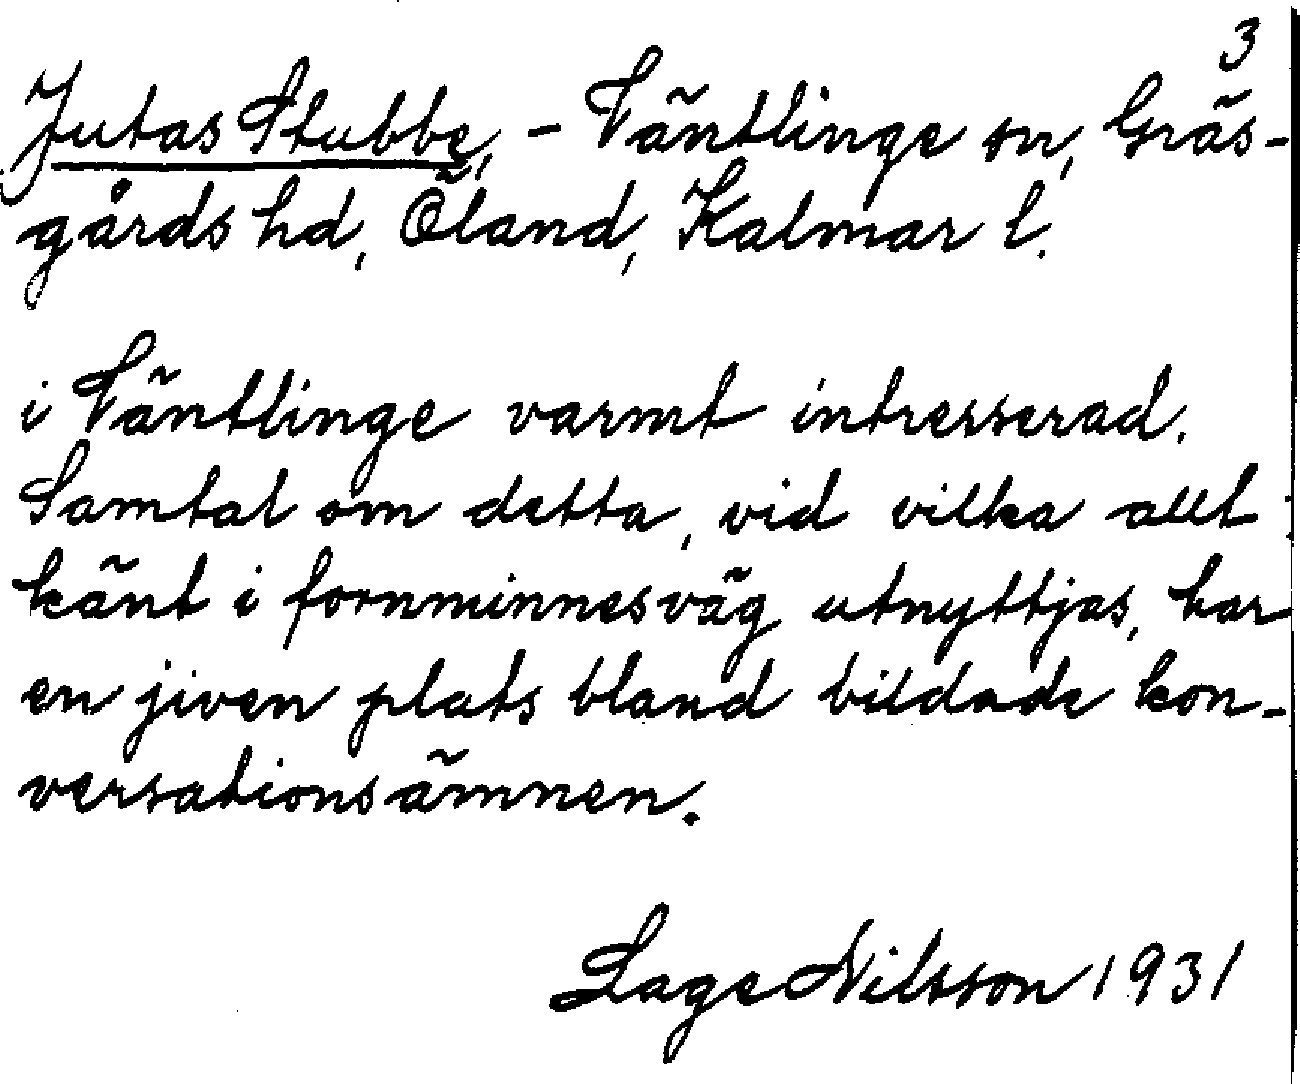 3
Jutas Stubbe, - Väntlinge sn, Gräs-
gårds hd, Öland, Kalmar l.
i Väntlinge varmt intresserad.
Samtal om detta, vid vilka allt
känt i fornminnesväg utnyttjas, har
en given plats bland bildade kon-
versationsämnen.
Lage Nilsson 1931